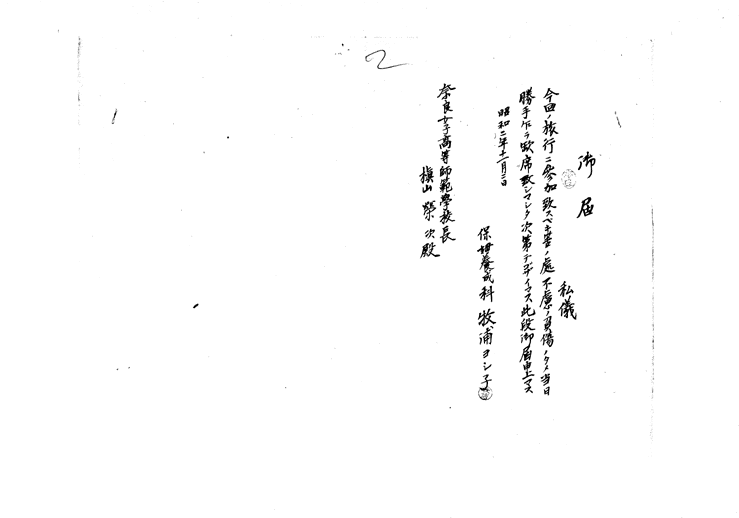 御届
私儀
今回ノ旅行ニ参加致スベキ筈ノ處不慮ノ負傷ノタメ当日
勝手乍ラ欠席致シマシタ次第デゴザイマス此段御届申上マス
昭和二年十一月二日
保姆養成科 牧浦ヨシ子
奈良女子高等師範學校長
槇山榮次殿
2